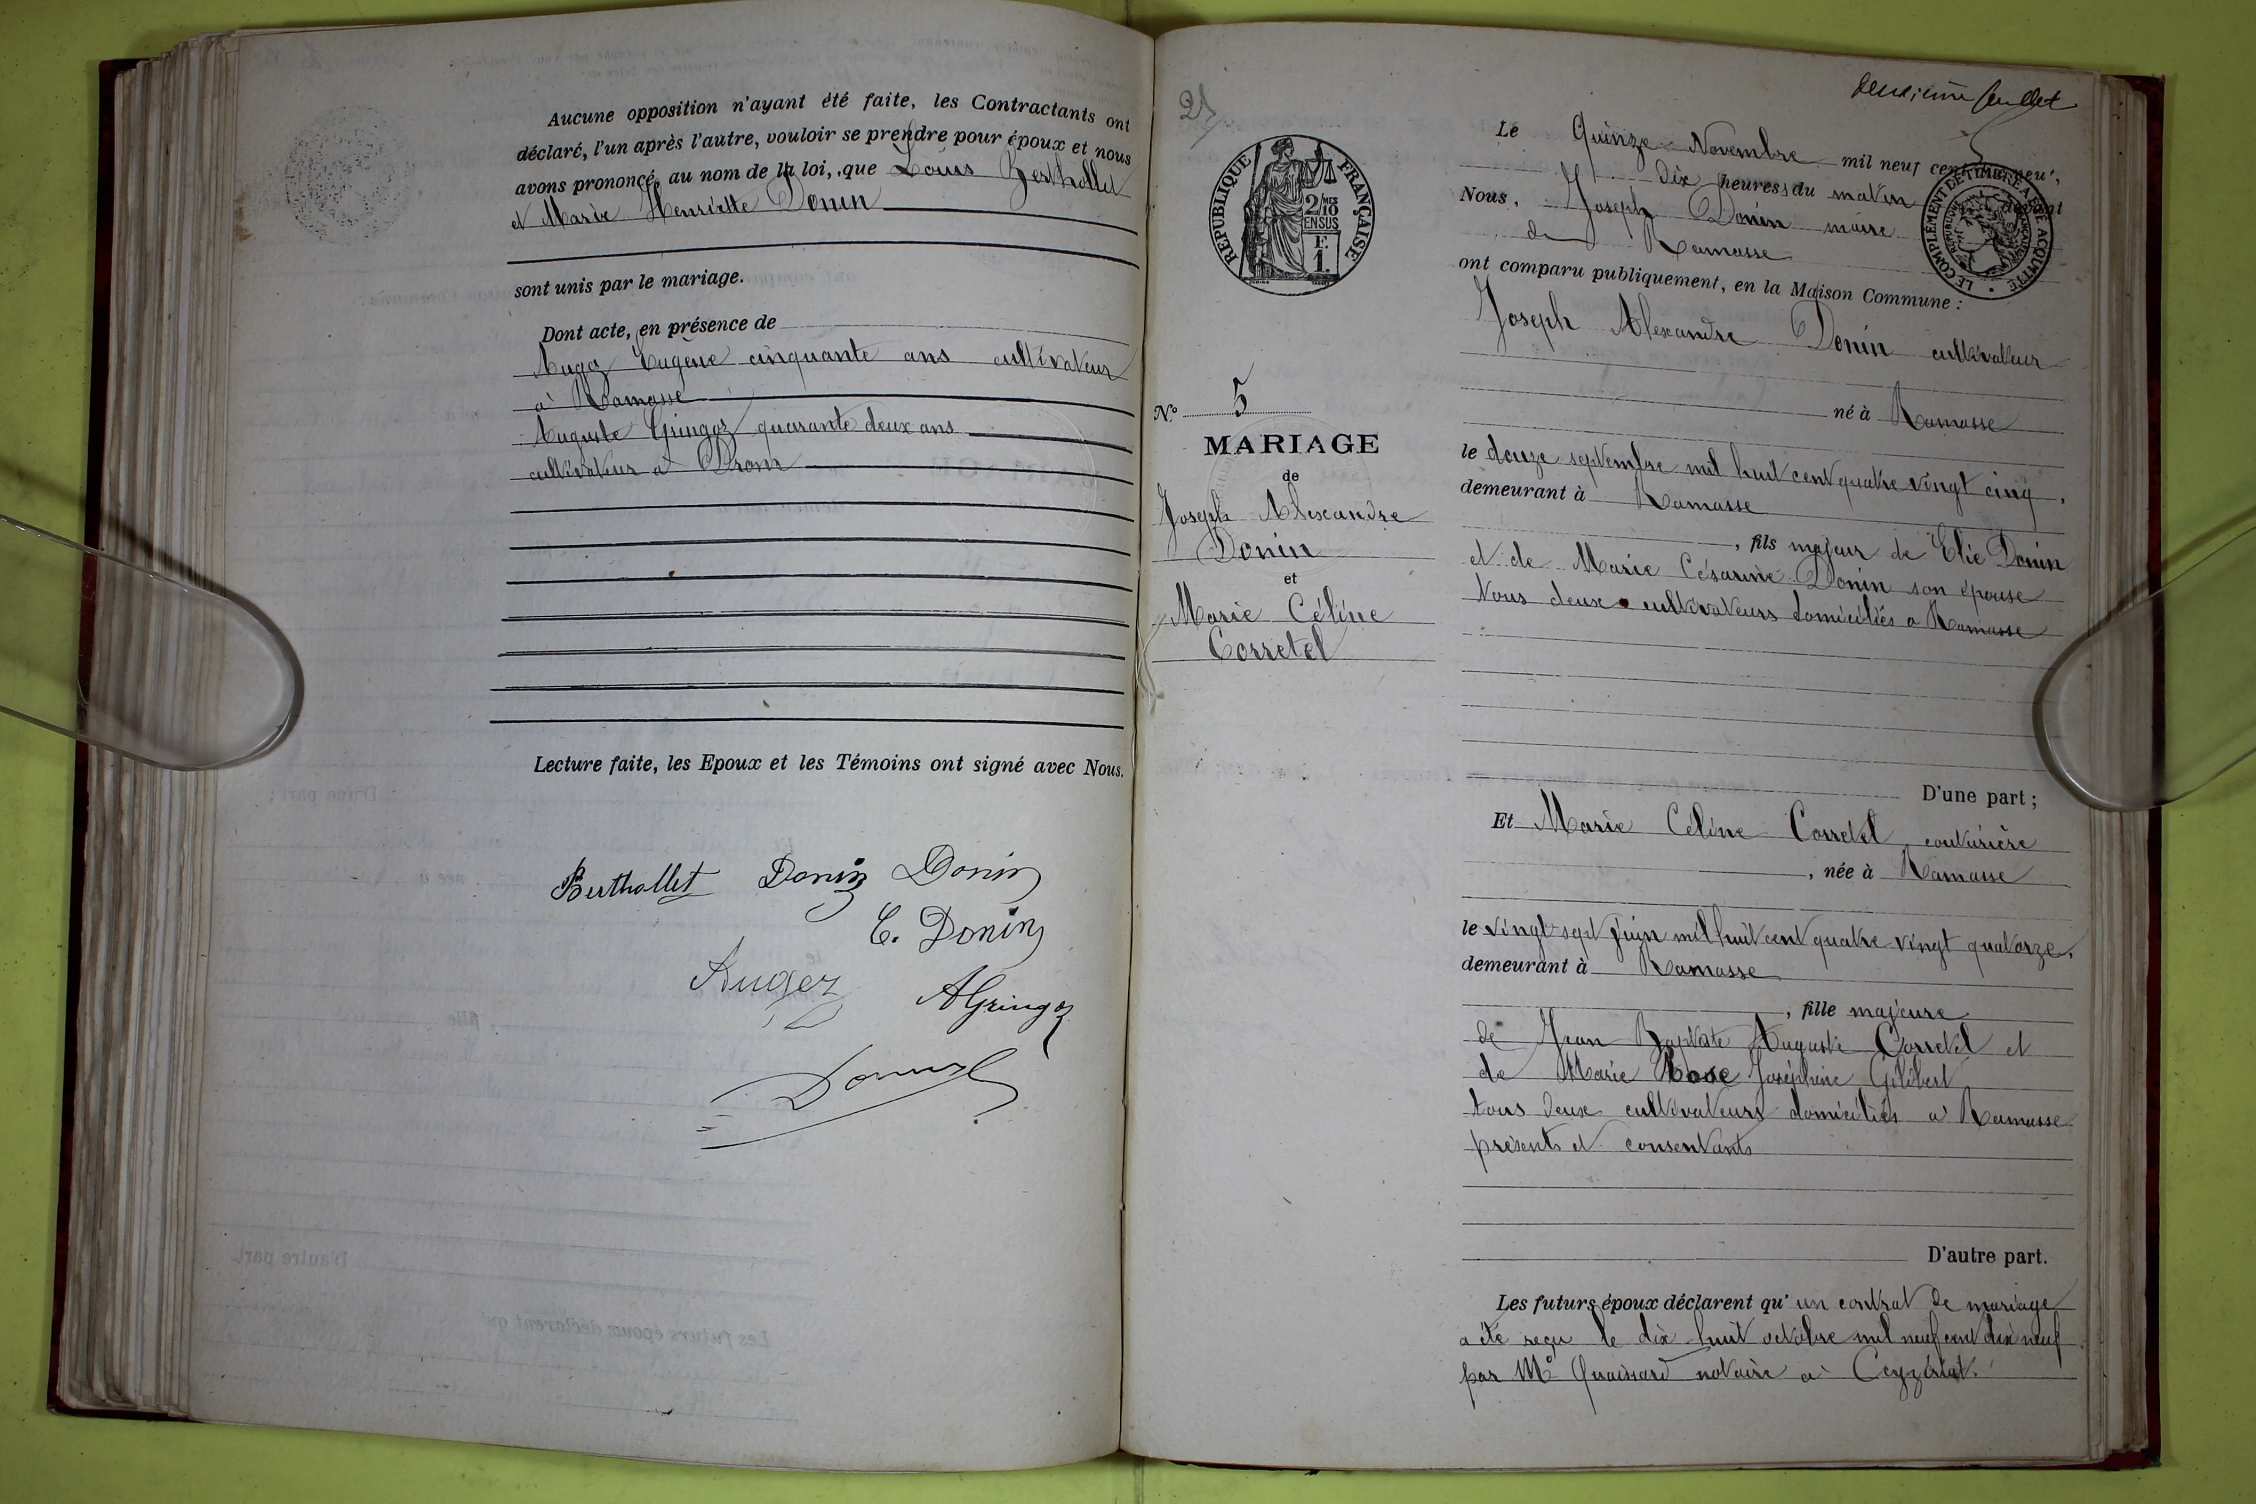 Aucune opposition n'ayant été faite, les Contractants ont
déclaré, l'un après l'autre, vouloir se prendre pour époux et nous
avons prononcé, au nom de la loi, que Louis Berthollet
et Marie Henriette Donin
sont unis par le mariage.
Dont acte, en présence de
Eugène cinquante ans cultivateur
à Ramasse
Auguste Gringoz quarante deux ans
cultivateur à Drom
Lecture faite, les Epoux et les Témoins ont signé avec Nous.
Berthollet Donin Donin
E. Donin
Auger AGringoz
deuxième feuillet
Le Quinze Novembre mil neuf cent
dix heures du matin devant
Nous, Joseph Donin maire
de Ramasse
ont comparu publiquement, en la Maison Commune :
Joseph Alexandre Donin cultivateur
né à Ramasse
le douze septembre mil huit cent quatre vingt cinq,
demeurant à Ramasse
, fils majeur de Elie Donin
et de Marie Césarine Donin son épouse
tous deux cultivateurs domiciliés a Ramasse
D'une part ;
Et Marie Céline Corretel couturière
, née à Ramasse
le vingt sept juin mil huit cent quatre vingt quatorze,
demeurant à Ramasse
, fille majeure
de Jean Baptiste Auguste Corretel et
de Marie Rose Joséphine Gilibert
tous deux cultivateurs domiciliés a Ramasse
présents et consentants
D'autre part.
Les futurs époux déclarent qu'un contrat de mariage
a été reçu le dix huit octobre mil neuf cent dix neuf
par Me notaire a Ceyzériat.
RÉPUBLIQUE FRANÇAISE
2/10 EN SUS
F. 1.
LE COMPLÉMENT DE TIMBRE A ÉTÉ ACQUITTÉ
No 5
MARIAGE
de
Joseph Alexandre
Donin
et
Marie Céline
Corretel